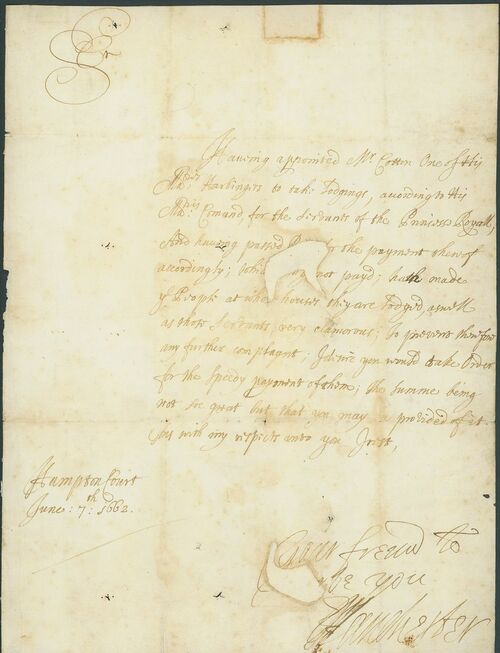 Sr
Having appointed Mr. Cotton One of His
Maties: Harbingers to take Lodgings, according to His
Maties: Comand for the Servants of the Princess Royall,
And having passed the payment thereof
accordingly; not payd; hath made
ye People at whose houses they are Lodged aswell
as those Servants very clamorous; To prevent therefore
any further complaynt; I desire you would take Order
for the speedy payment of them; the summe being
not soe great but that you may provided of it
with my respects unto you I rest,
Hampton Court
June: 7th: 1662.
Your freind to
you
Manchester